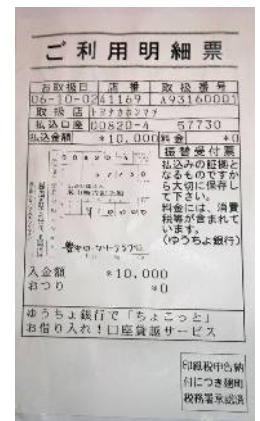 ご利用明細票
お取扱日 店番 取扱番号
06-10-02 41169 A93160001
取扱店 トヨナカホンマチ
払込口座 00820-4 57730
払込金額 *10,000 料金 *0
振替受付票
払込みの証拠と
なるものですか
ら大切に保存し
て下さい。
料金には、消費
税等が含まれて
います。
(ゆうちょ銀行)
00820 4
57730
10000
入金額 *10,000
おつり *0
ゆうちょ銀行で「ちょこっと」
お借り入れ!口座貸越サービス
印紙税申告納
付につき麹町
税務署承認済